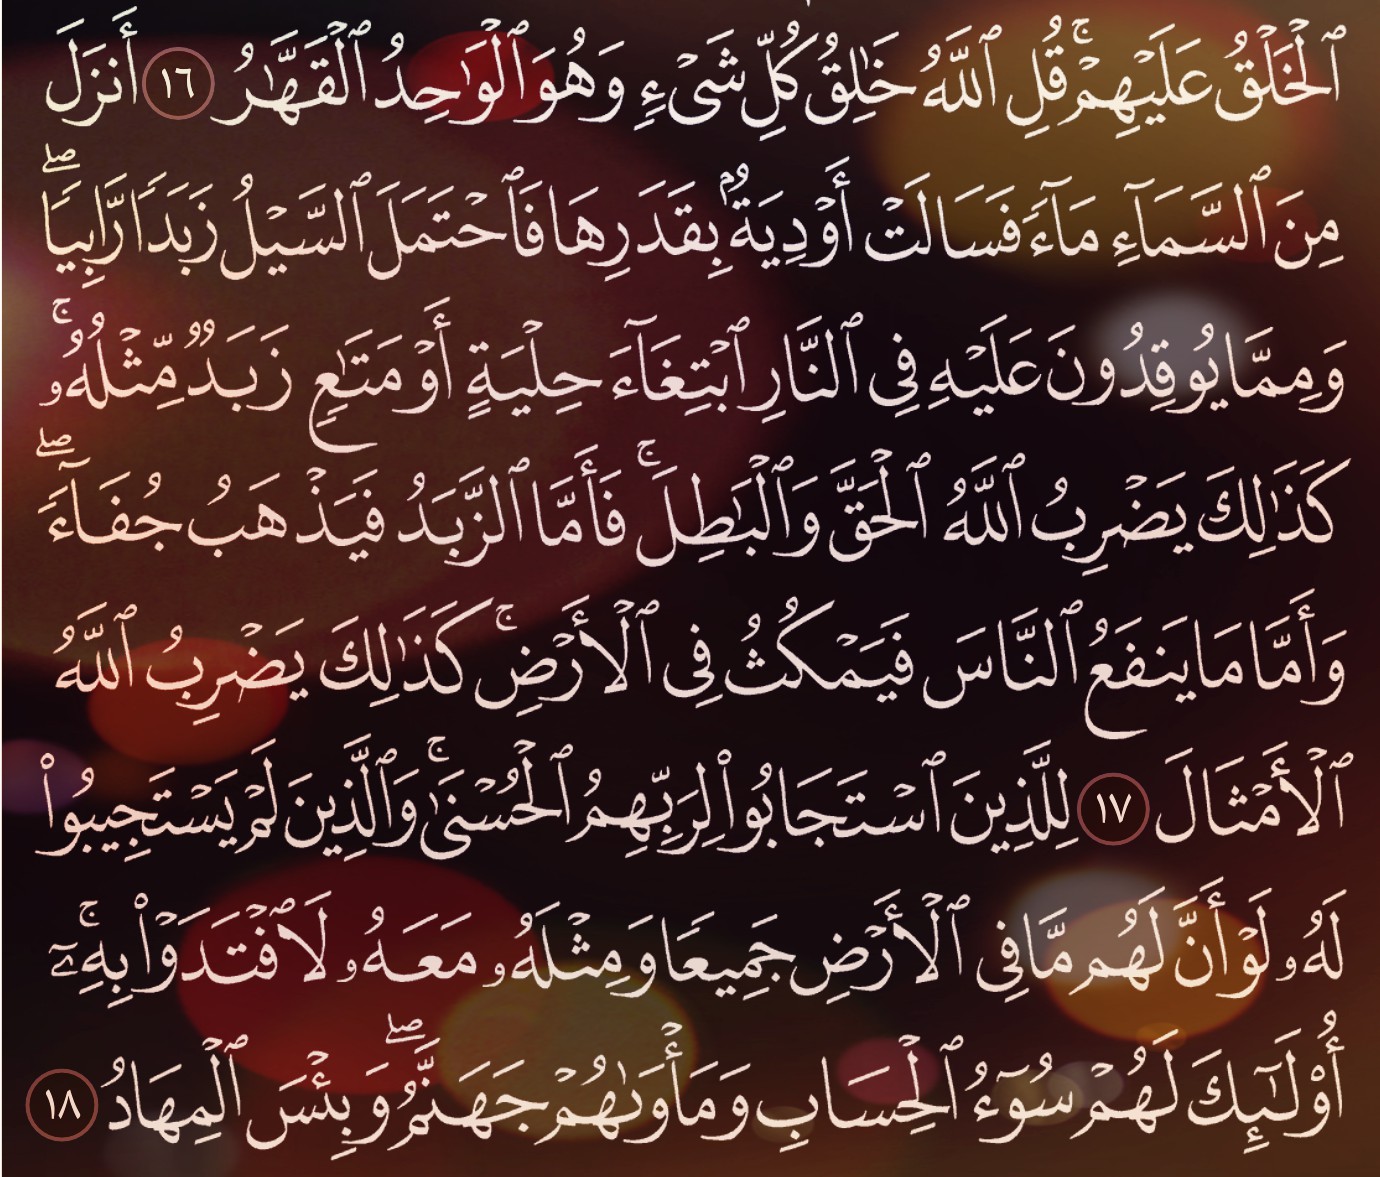 ٱلْخَلْقُ عَلَيْهِمْ ۚ قُلِ ٱللَّهُ خَـٰلِقُ كُلِّ شَىْءٍ وَهُوَ ٱلْوَٰحِدُ ٱلْقَهَّـٰرُ ١٦ أَنزَلَ
مِنَ ٱلسَّمَآءِ مَآءً فَسَالَتْ أَوْدِيَةٌۢ بِقَدَرِهَا فَٱحْتَمَلَ ٱلسَّيْلُ زَبَدًا رَّابِيًا ۖ
وَمِمَّا يُوقِدُونَ عَلَيْهِ فِى ٱلنَّارِ ٱبْتِغَآءَ حِلْيَةٍ أَوْ مَتَـٰعٍ زَبَدٌ مِّثْلُهُۥ ۚ
كَذَٰلِكَ يَضْرِبُ ٱللَّهُ ٱلْحَقَّ وَٱلْبَـٰطِلَ ۚ فَأَمَّا ٱلزَّبَدُ فَيَذْهَبُ جُفَآءً ۖ
وَأَمَّا مَا يَنفَعُ ٱلنَّاسَ فَيَمْكُثُ فِى ٱلْأَرْضِ ۚ كَذَٰلِكَ يَضْرِبُ ٱللَّهُ
ٱلْأَمْثَالَ ١٧ لِلَّذِينَ ٱسْتَجَابُوا۟ لِرَبِّهِمُ ٱلْحُسْنَىٰ ۚ وَٱلَّذِينَ لَمْ يَسْتَجِيبُوا۟
لَهُۥ لَوْ أَنَّ لَهُم مَّا فِى ٱلْأَرْضِ جَمِيعًا وَمِثْلَهُۥ مَعَهُۥ لَٱفْتَدَوْا۟ بِهِۦٓ ۚ
أُو۟لَـٰٓئِكَ لَهُمْ سُوٓءُ ٱلْحِسَابِ وَمَأْوَىٰهُمْ جَهَنَّمُ ۖ وَبِئْسَ ٱلْمِهَادُ ١٨